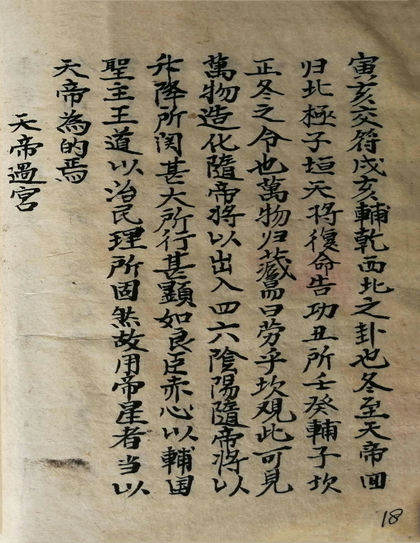 寅亥交符戌亥輔乾西北之卦也冬至天帝回
归北極子垣天将復命告功丑所壬癸輔子坎
正冬之令也萬物归藏昜曰劳乎坎观此可見
萬物造化隨帝将以出入四六陰陽隨帝将以
升降所関甚大所行甚顯如良臣赤心以輔国
聖主王道以治民理所固然故用帝星者当以
天帝為的焉
天帝過宮
18